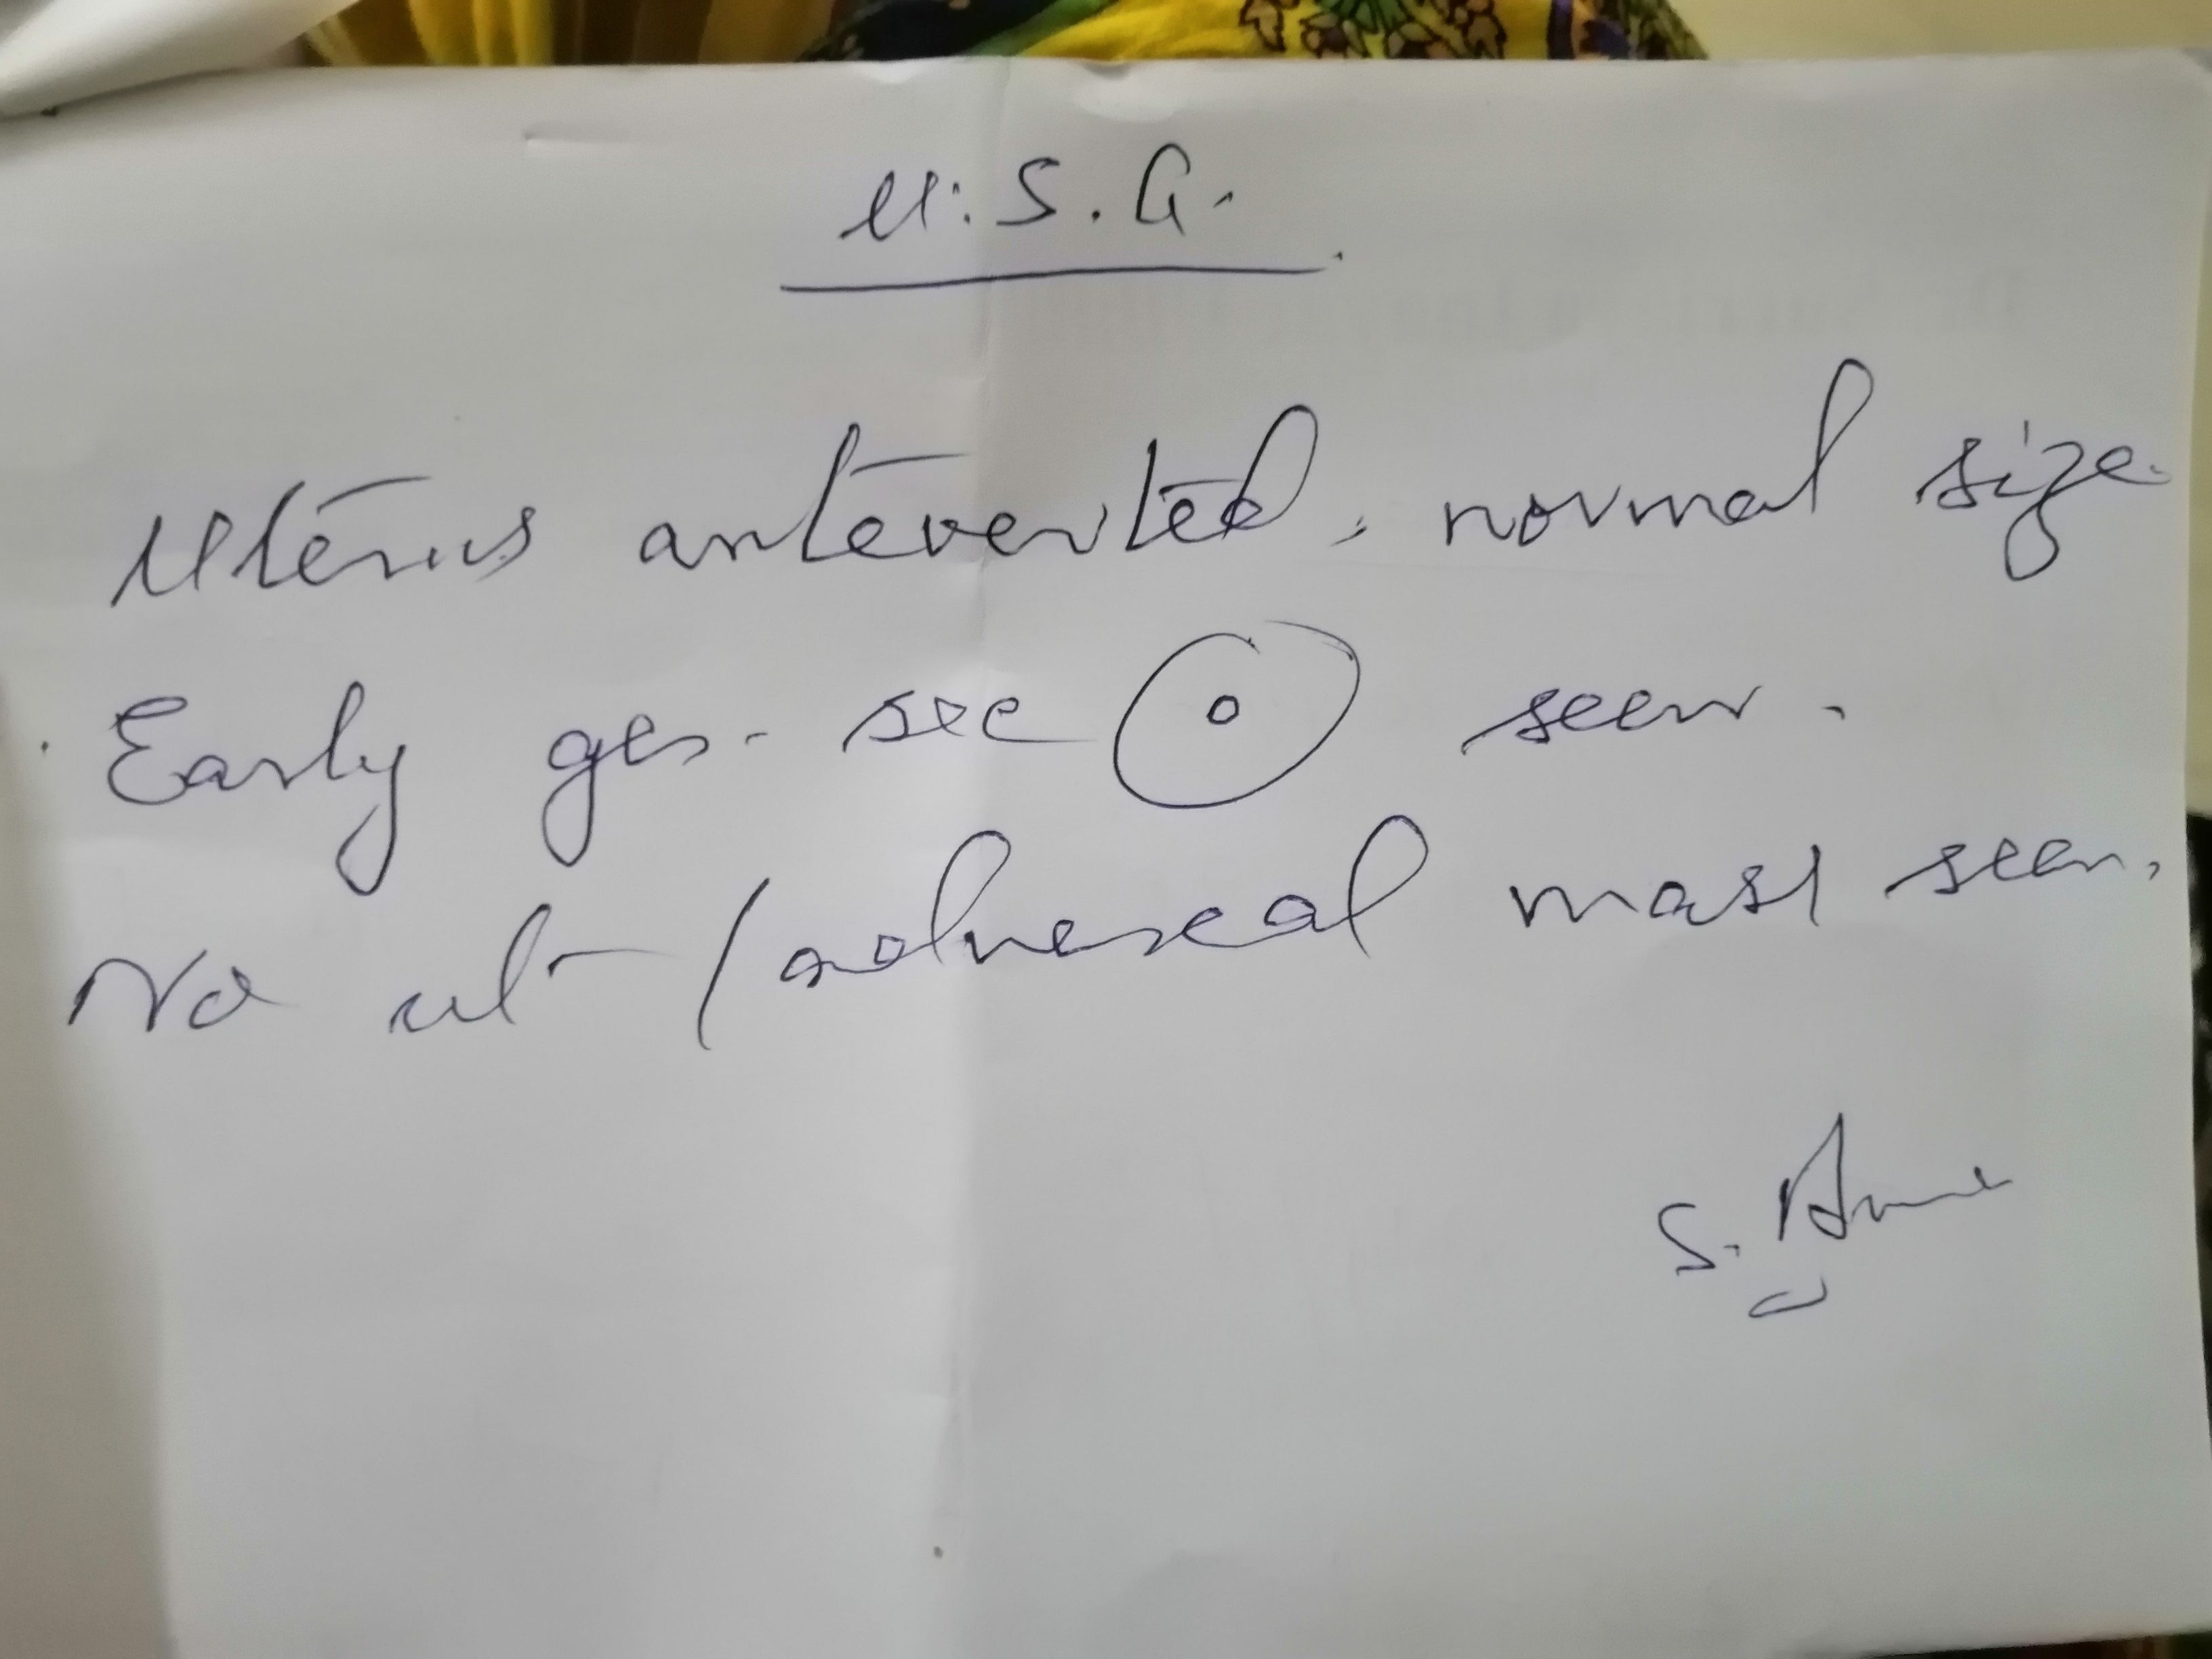 U.S.G.
Uterus anteverted, normal size.
Early ges. sac seen.
No ut / adnexal mass seen.
S.